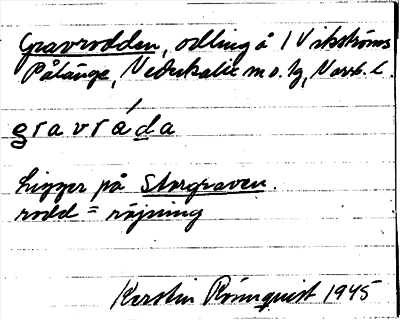 Gravrodden, odling å 1 Vikströms
Pålänge, Nederkalix m o. lg, Norrb. l.
gravróda
Ligger på Storgraven.
rodd = röjning
Kerstin Rönnquist 1945